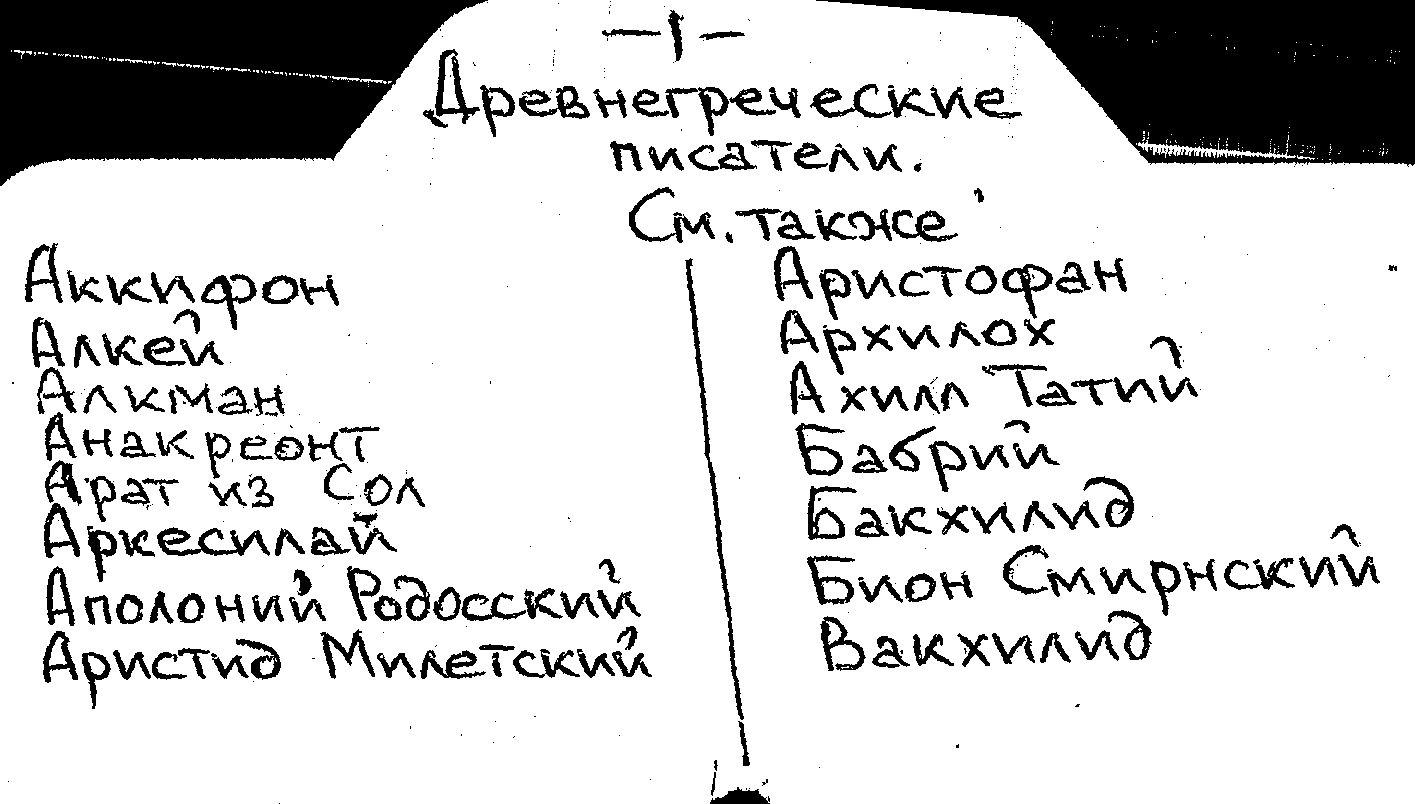 — 1 —
Древнегреческие
писатели.
См. также
Аккифон
Алкей
Алкман
Анакреонт
Арат из Сол
Аркесилай
Аполоний Родосский
Аристид Милетский
Аристофан
Архилох
Ахилл Татий
Бабрий
Бакхилид
Бион Смирнский
Вакхилид